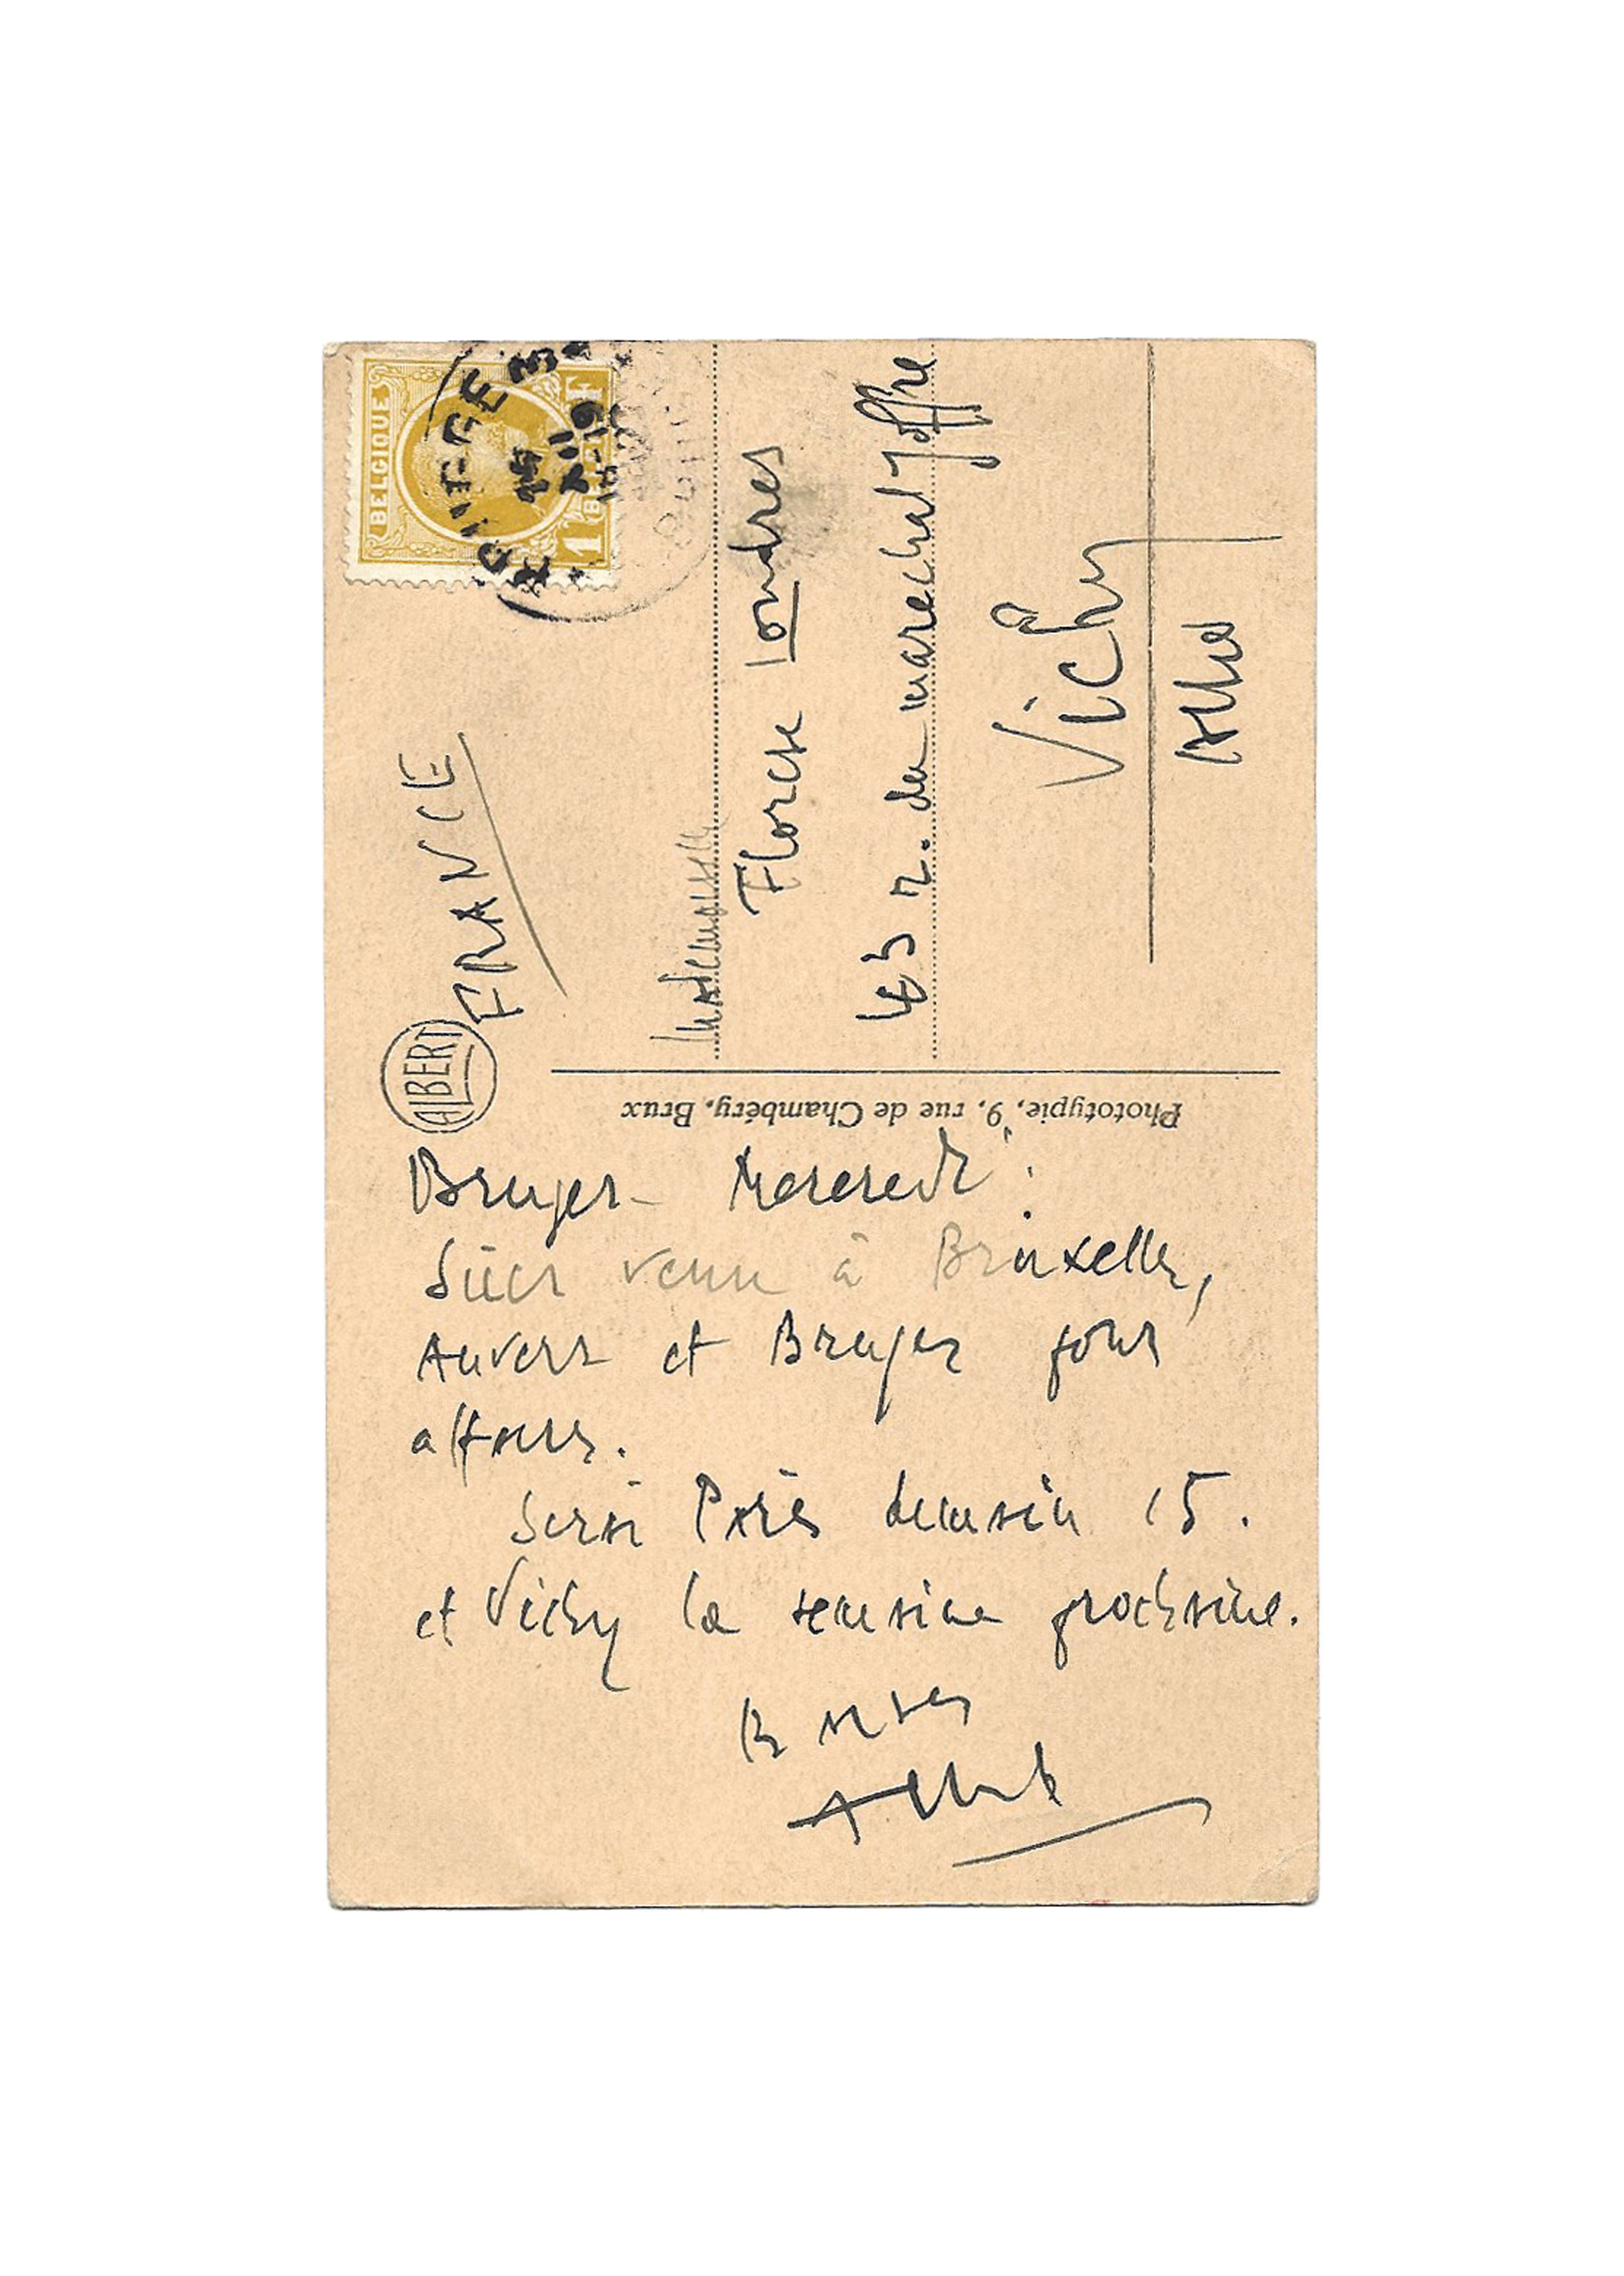 BELGIQUE
1 F
ALBERT
FRANCE
Mademoiselle
Florise Londres
43 r. du marechal Joffre
Vichy
Allier
Phototypie, 9, rue de Chambéry, Brux
Bruges - Mercredi :
Suis venu à Bruxelles,
Anvers et Bruges pour
affaires.
Serai Paris demain 15.
et Vichy la semaine prochaine.
Baisers
Albert